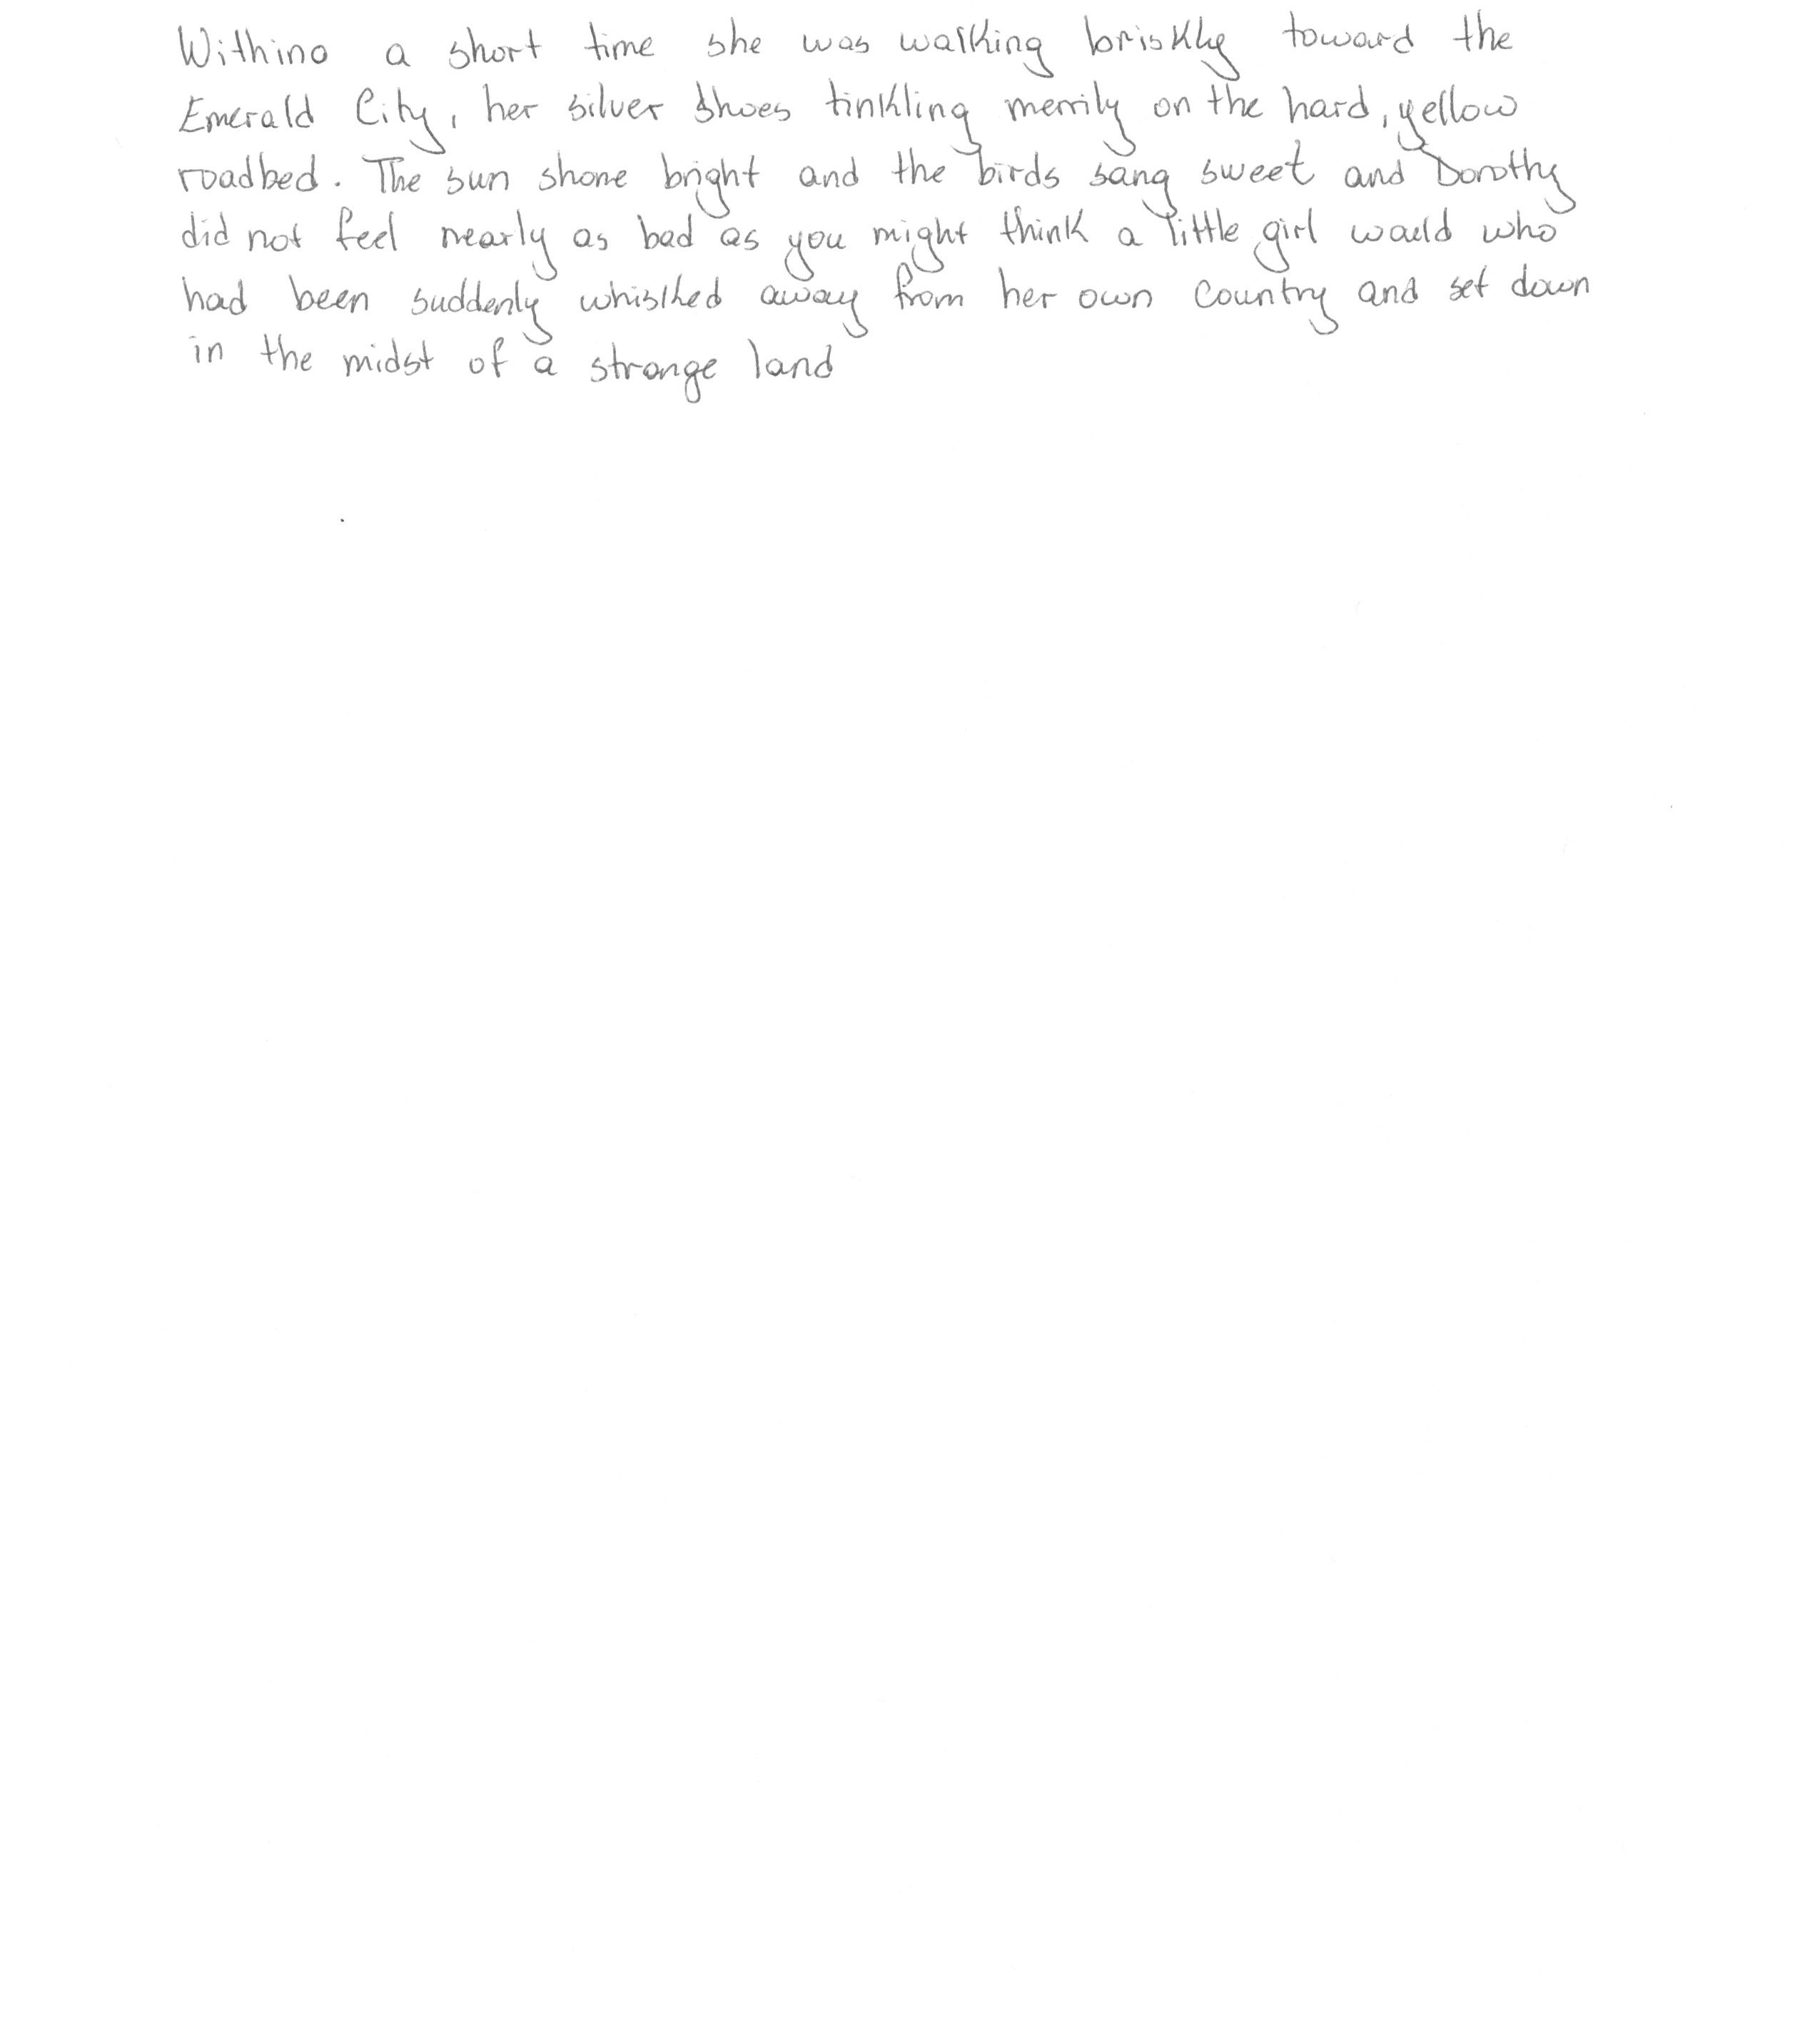 Withino a short time she was walking briskly toward the
Emerald City, her silver shoes tinkling merrily on the hard, yellow
roadbed. The sun shone bright and the birds sang sweet and Dorothy
did not feel nearly as bad as you might think a little girl would who
had been suddenly whislked away from her own country and set down
in the midst of a strange land